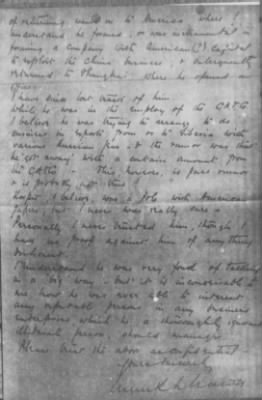 of returning went on to America where I
understand he formed, or was instrumental in
forming a Company with American(?) Capital
to exploit the China business & subsequently
returned to Shanghai where he opened an
office.
I have since lost track of him.
While he was in the employ of the
I believe he was trying to arrange to do
business in exports from or to Siberia with
various Russian & the rumor was that
he 'got away' with a certain amount from
the This, however, is pure rumor
& is probably not true!
I believe, was a Pole with American
papers, but I never was really sure.
Personally I never trusted him, though I
have no proof against him of anything
dishonest.
he was very fond of talking
in a big way - but it is inconceivable to
me how he was ever able to interest
any responsible persons in any business
enterprises which he, a thoroughly ignorant
illiterate person should manage.
Please treat the above as confidential
Yours sincerely